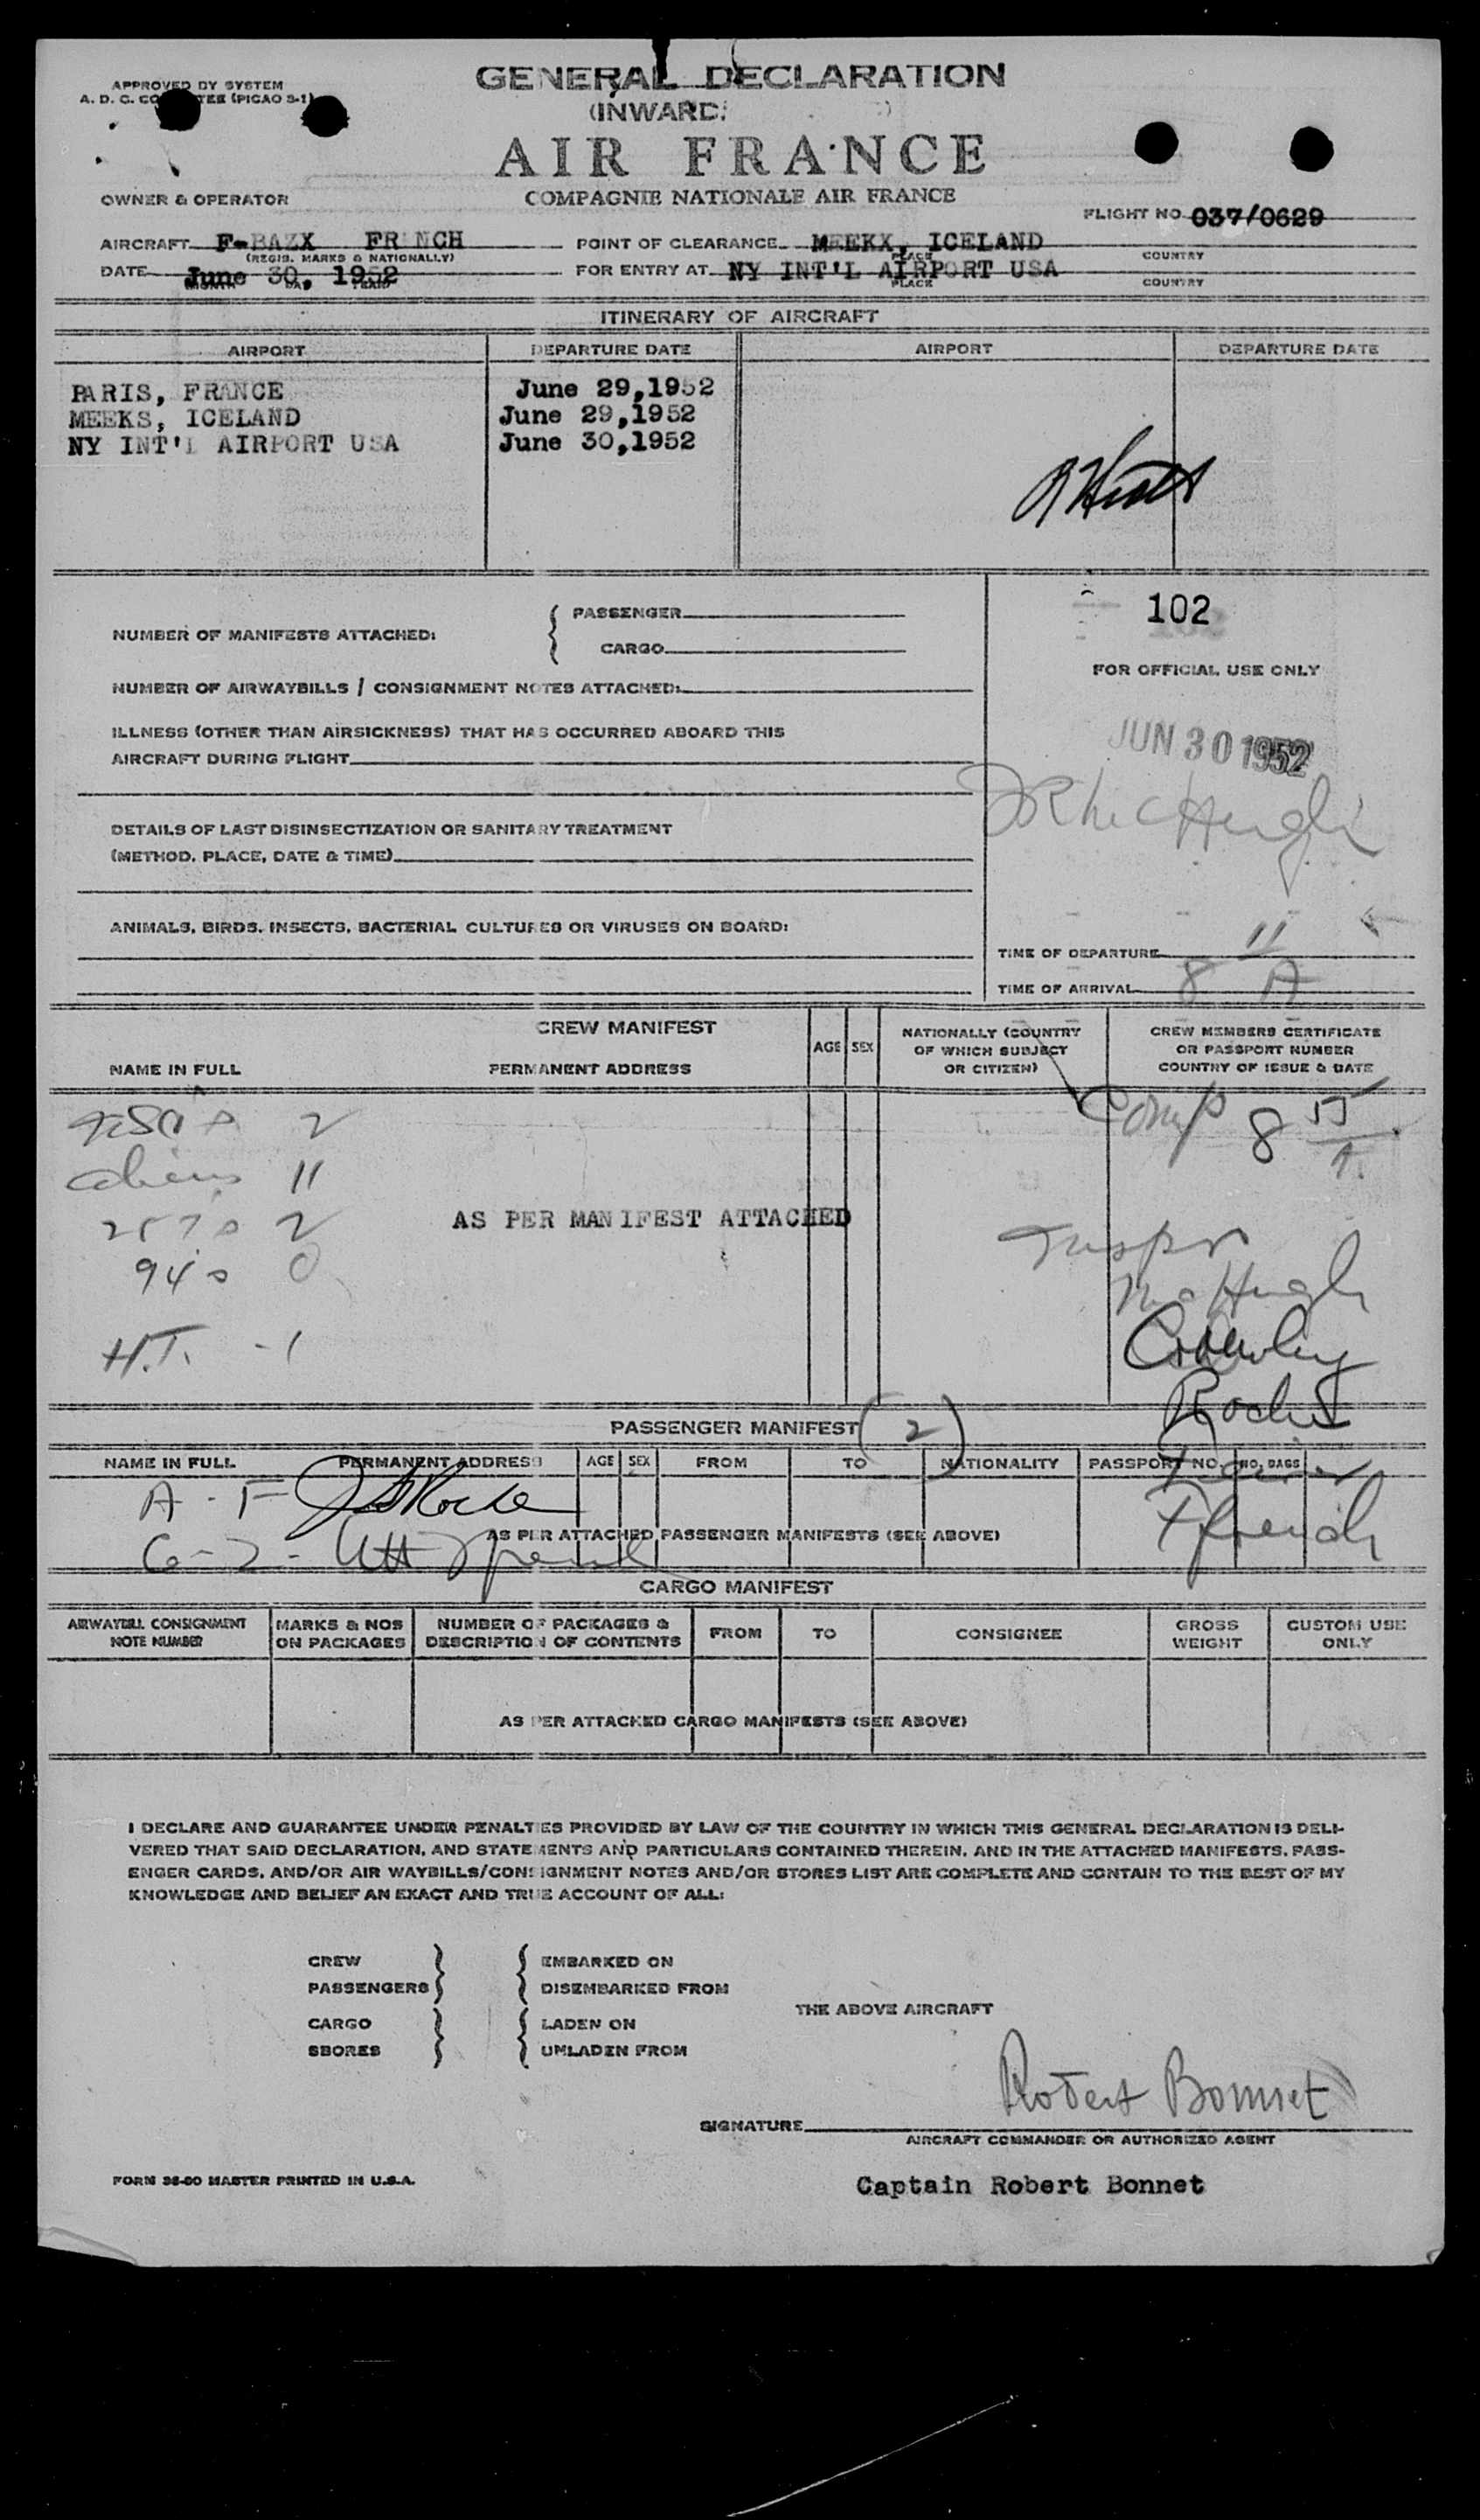 GENERAL DECLARATION
(INWARD)
APPROVED BY SYSTEM
A. D. C. (PICAO S-1)
AIR FRANCE
COMPAGNIE NATIONALE AIR FRANCE
OWNER & OPERATOR
FLIGHT NO 037/0629
AIRCRAFT F-BAZX FRENCH POINT OF CLEARANCE MEEKX, ICELAND
(REGIS. MARKS & NATIONALLY) PLACE COUNTRY
DATE June 30, 1952 FOR ENTRY AT NY INT'L AIRPORT USA
PLACE COUNTRY
ITINERARY OF AIRCRAFT
AIRPORT DEPARTURE DATE AIRPORT DEPARTURE DATE
PARIS, FRANCE June 29,1952
MEEKS, ICELAND June 29,1952
NY INT'L AIRPORT USA June 30,1952
102
NUMBER OF MANIFESTS ATTACHED: PASSENGER
CARGO
FOR OFFICIAL USE ONLY
NUMBER OF AIRWAYBILLS / CONSIGNMENT NOTES ATTACHED:
ILLNESS (OTHER THAN AIRSICKNESS) THAT HAS OCCURRED ABOARD THIS
AIRCRAFT DURING FLIGHT
JUN 30 1952
DETAILS OF LAST DISINSECTIZATION OR SANITARY TREATMENT
(METHOD, PLACE, DATE & TIME)
ANIMALS, BIRDS, INSECTS, BACTERIAL CULTURES OR VIRUSES ON BOARD:
TIME OF DEPARTURE
TIME OF ARRIVAL 8 11 A
CREW MANIFEST
NAME IN FULL PERMANENT ADDRESS AGE SEX NATIONALLY (COUNTRY OF WHICH SUBJECT OR CITIZEN) CREW MEMBERS CERTIFICATE OR PASSPORT NUMBER COUNTRY OF ISSUE & DATE
2
Comp 8 55
Aliens 11
2
AS PER MANIFEST ATTACHED
94s 0
Inspr
McHugh
H.T. - 1
Crowley
Roche
PASSENGER MANIFEST (2)
NAME IN FULL PERMANENT ADDRESS AGE SEX FROM TO NATIONALITY PASSPORT NO. NO. BAGS
A - F
AS PER ATTACHED PASSENGER MANIFESTS (SEE ABOVE)
G-Z-
CARGO MANIFEST
AIRWAYBILL CONSIGNMENT NOTE NUMBER MARKS & NOS ON PACKAGES NUMBER OF PACKAGES & DESCRIPTION OF CONTENTS FROM TO CONSIGNEE GROSS WEIGHT CUSTOM USE ONLY
AS PER ATTACHED CARGO MANIFESTS (SEE ABOVE)
I DECLARE AND GUARANTEE UNDER PENALTIES PROVIDED BY LAW OF THE COUNTRY IN WHICH THIS GENERAL DECLARATION IS DELI-
VERED THAT SAID DECLARATION, AND STATEMENTS AND PARTICULARS CONTAINED THEREIN, AND IN THE ATTACHED MANIFESTS, PASS-
ENGER CARDS, AND/OR AIR WAYBILLS/CONSIGNMENT NOTES AND/OR STORES LIST ARE COMPLETE AND CONTAIN TO THE BEST OF MY
KNOWLEDGE AND BELIEF AN EXACT AND TRUE ACCOUNT OF ALL:
CREW EMBARKED ON
PASSENGERS DISEMBARKED FROM
THE ABOVE AIRCRAFT
CARGO LADEN ON
SBORES UNLADEN FROM
Robert Bonnet
SIGNATURE
AIRCRAFT COMMANDER OR AUTHORIZED AGENT
FORM 36-00 MASTER PRINTED IN U.S.A.
Captain Robert Bonnet